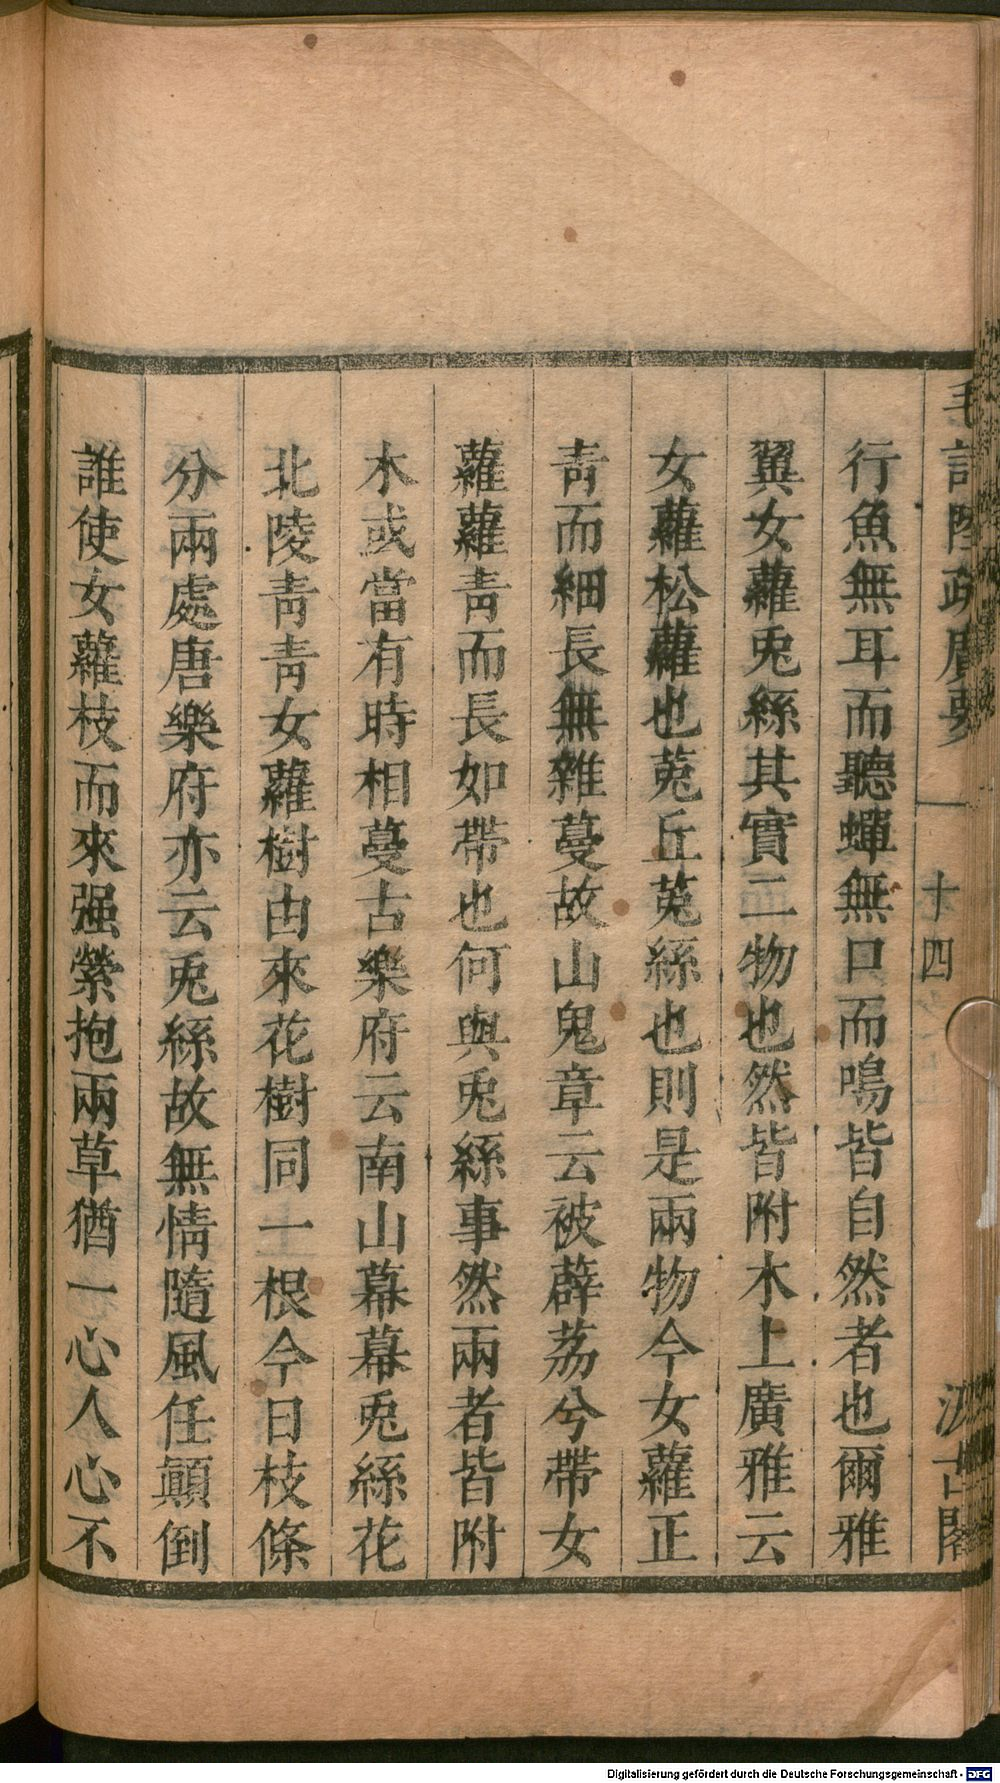 毛詩陸疏廣要 十四 汲古閣
行魚無耳而聽蟬無口而鳴皆自然者也爾雅
翼女蘿兎絲其實二物也然皆附木上廣雅云
女蘿松蘿也菟丘菟絲也則是兩物今女蘿正
青而細長無雜蔓故山鬼章云被薜荔兮帶女
蘿蘿青而長如帶也何與兎絲事然兩者皆附
木或當有時相蔓古樂府云南山幕幕兎絲花
北陵青青女蘿樹由來花樹同一根今日枝條
分兩處唐樂府亦云兎絲故無情隨風任顛倒
誰使女蘿枝而來强縈抱兩草猶一心人心不
Digitalisierung gefördert durch die Deutsche Forschungsgemeinschaft - DFG